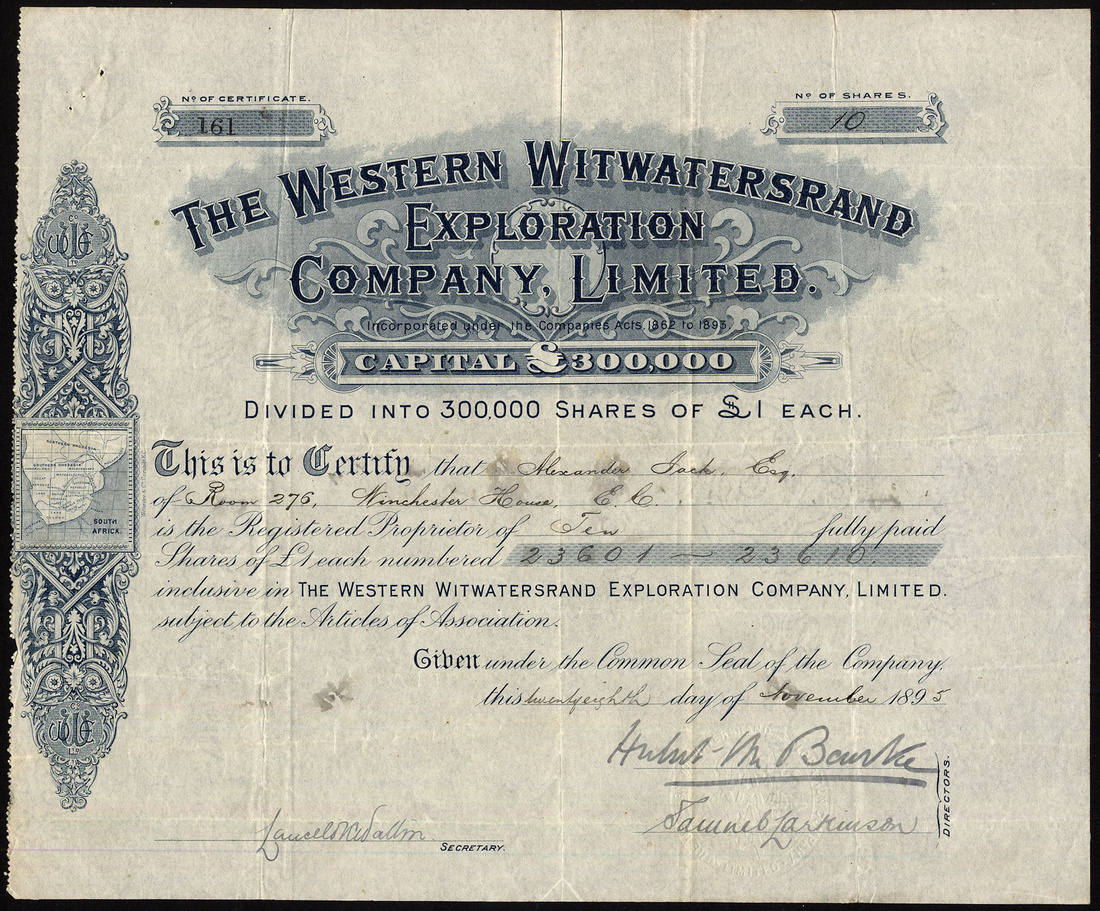 No OF CERTIFICATE.
161
No OF SHARES.
10
THE WESTERN WITWATERSRAND
EXPLORATION
COMPANY, LIMITED.
Incorporated under the Companies Acts, 1862 to 1893.
CAPITAL £300,000
DIVIDED INTO 300,000 SHARES OF £1 EACH.
This is to Certify that Alexander Jack, Esq.
of Room 276, Winchester House, E.C.
is the Registered Proprietor of Ten fully paid
Shares of £1 each numbered 23601 — 23610.
inclusive in THE WESTERN WITWATERSRAND EXPLORATION COMPANY, LIMITED.
subject to the Articles of Association.
Given under the Common Seal of the Company,
this twenty eighth day of November 1895
Hubert M Bourke
Samuel Larkinson
DIRECTORS.
SECRETARY.
NORTHERN RHODESIA
SOUTHERN RHODESIA
SOUTH
AFRICA.